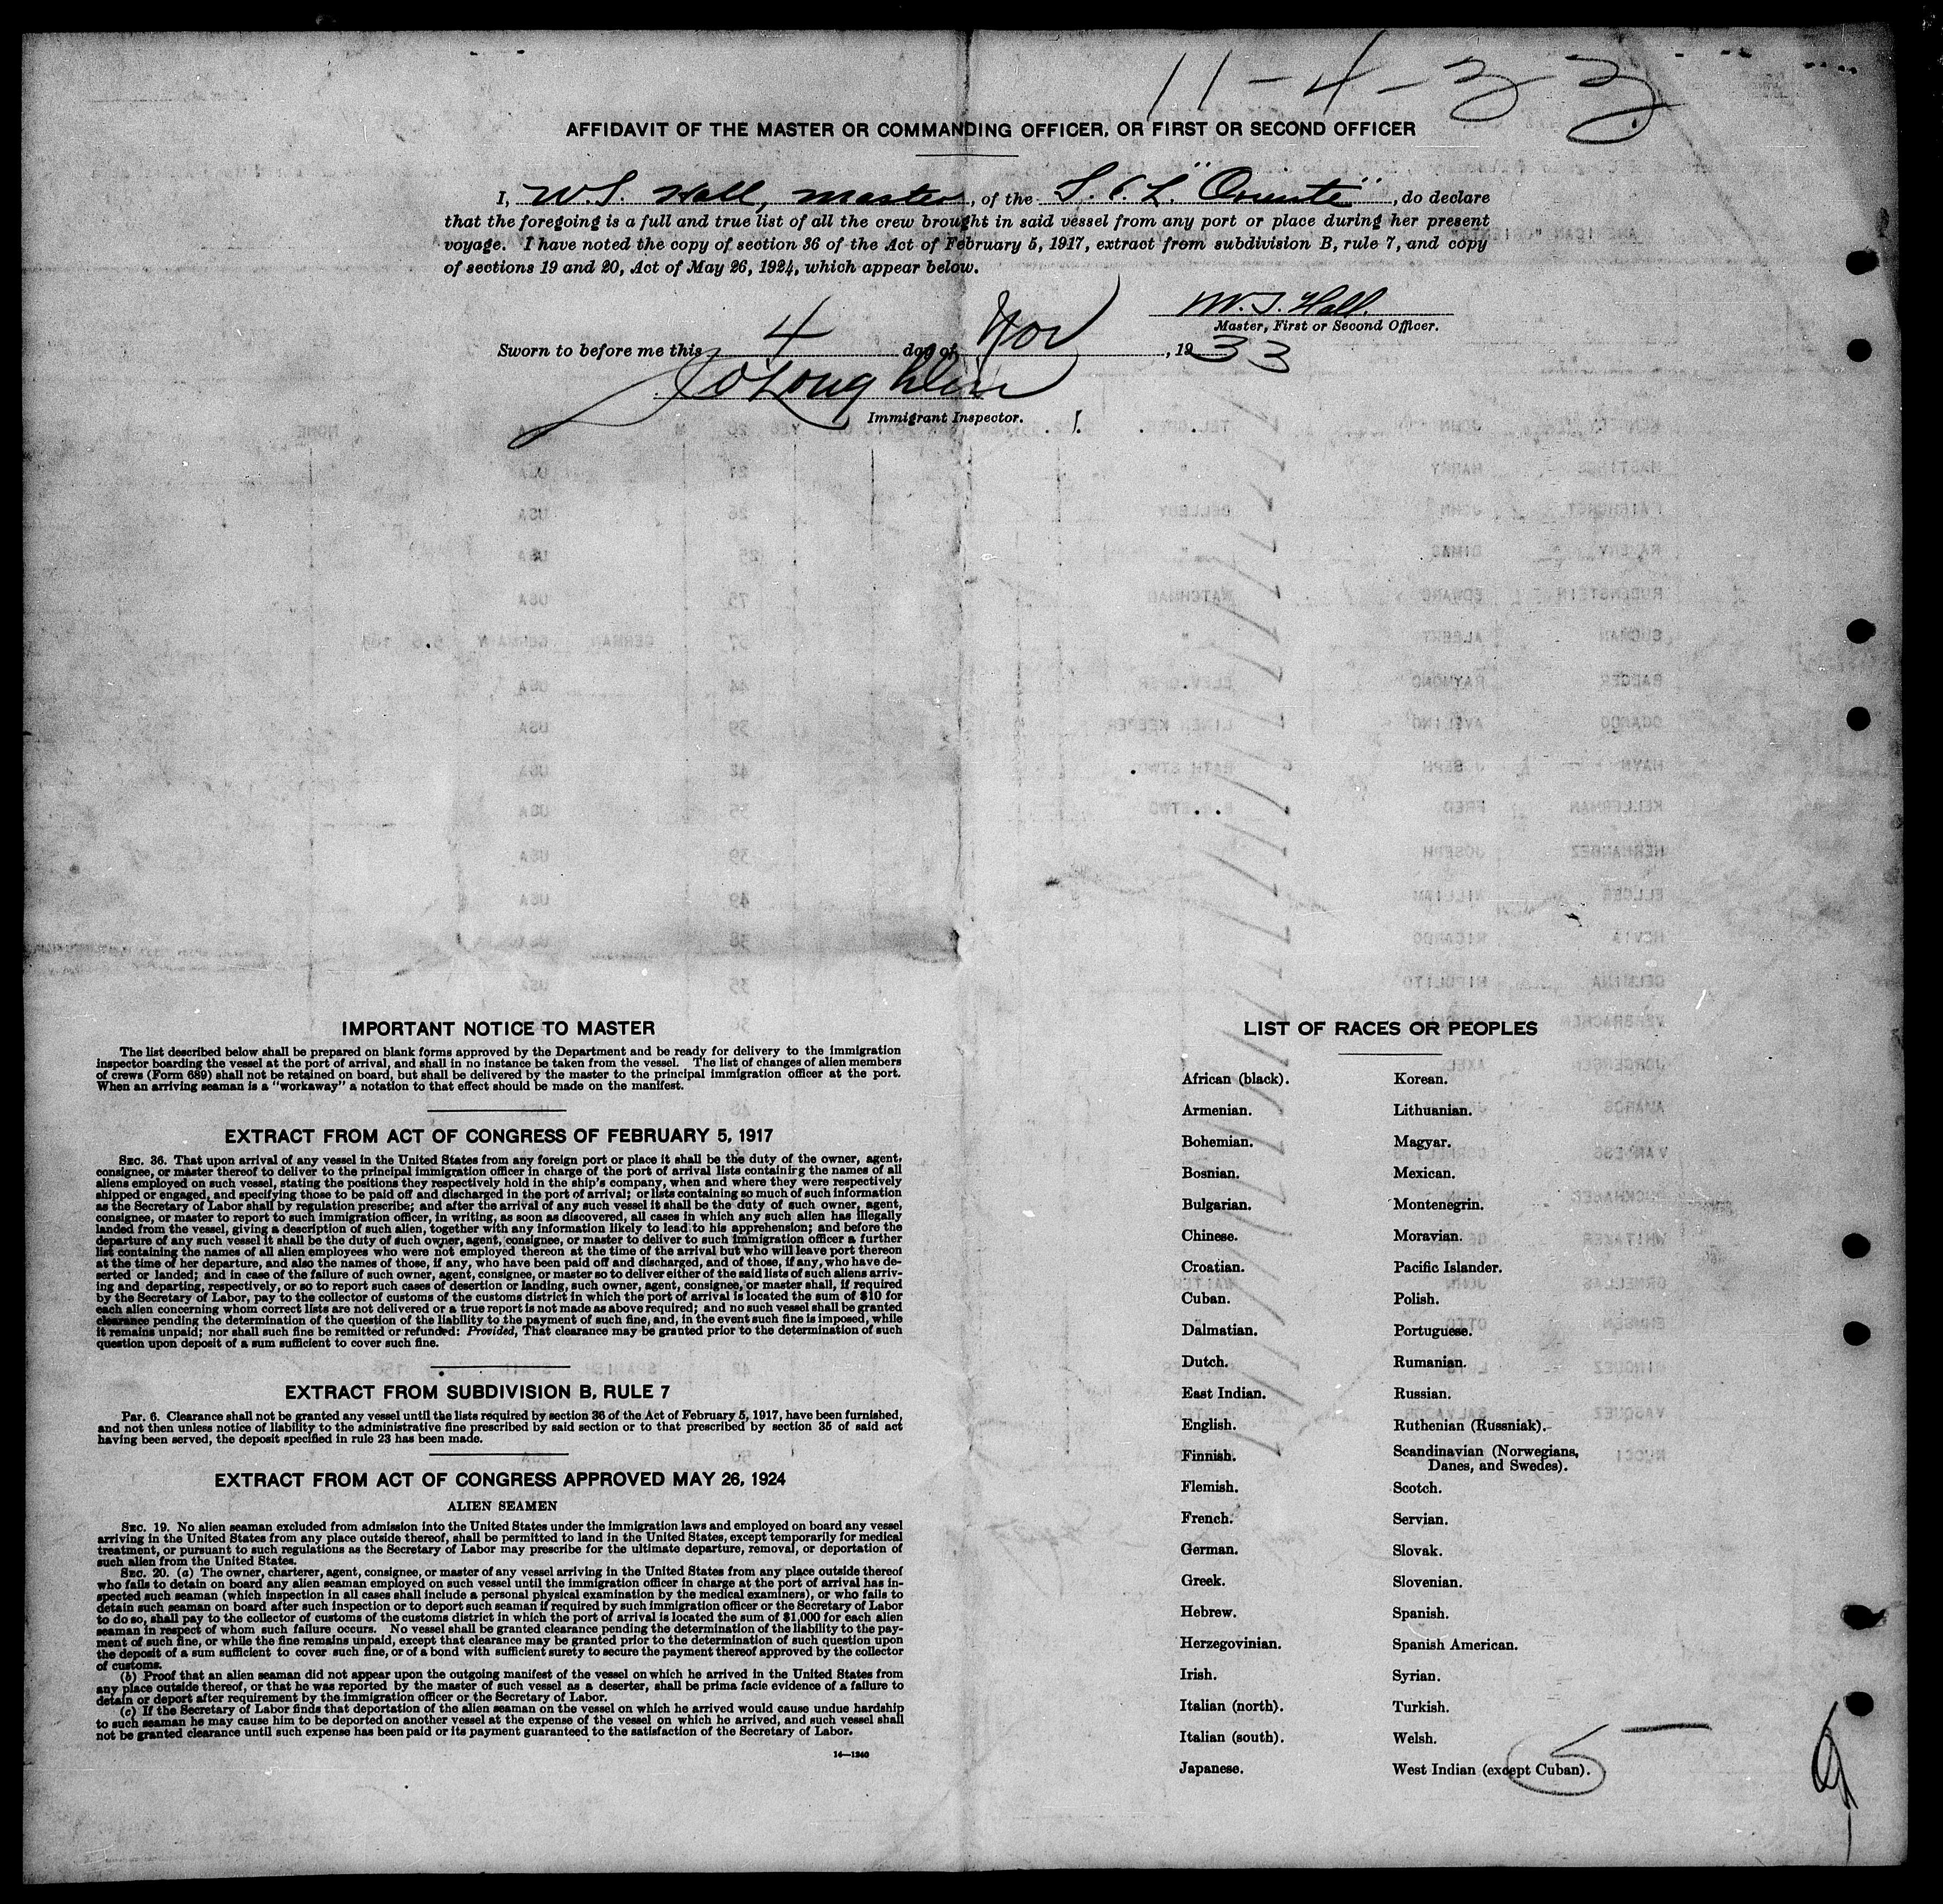 11-4-33
AFFIDAVIT OF THE MASTER OR COMMANDING OFFICER, OR FIRST OR SECOND OFFICER
I, W.S. Hall, Master, of the "Oriente", do declare
that the foregoing is a full and true list of all the crew brought in said vessel from any port or place during her present
voyage. I have noted the copy of section 36 of the Act of February 5, 1917, extract from subdivision B, rule 7, and copy
of sections 19 and 20, Act of May 26, 1924, which appear below.
W.S. Hall.
Master, First or Second Officer.
Sworn to before me this 4 day of Nov, 1933
Immigrant Inspector.
IMPORTANT NOTICE TO MASTER
The list described below shall be prepared on blank forms approved by the Department and be ready for delivery to the immigration
inspector boarding the vessel at the port of arrival, and shall in no instance be taken from the vessel. The list of changes of alien members
of crews (Form 689) shall not be retained on board, but shall be delivered by the master to the principal immigration officer at the port.
When an arriving seaman is a "workaway" a notation to that effect should be made on the manifest.
EXTRACT FROM ACT OF CONGRESS OF FEBRUARY 5, 1917
SEC. 36. That upon arrival of any vessel in the United States from any foreign port or place it shall be the duty of the owner, agent,
consignee, or master thereof to deliver to the principal immigration officer in charge of the port of arrival lists containing the names of all
aliens employed on such vessel, stating the positions they respectively hold in the ship's company, when and where they were respectively
shipped or engaged, and specifying those to be paid off and discharged in the port of arrival; or lists containing so much of such information
as the Secretary of Labor shall by regulation prescribe; and after the arrival of any such vessel it shall be the duty of such owner, agent,
consignee, or master to report to such immigration officer, in writing, as soon as discovered, all cases in which any such alien has illegally
landed from the vessel, giving a description of such alien, together with any information likely to lead to his apprehension; and before the
departure of any such vessel it shall be the duty of such owner, agent, consignee, or master to deliver to such immigration officer a further
list containing the names of all alien employees who were not employed thereon at the time of the arrival but who will leave port thereon
at the time of her departure, and also the names of those, if any, who have been paid off and discharged, and of those, if any, who have de-
serted or landed; and in case of the failure of such owner, agent, consignee, or master so to deliver either of the said lists of such aliens arriv-
ing and departing, respectively, or so to report such cases of desertion or landing, such owner, agent, consignee, or master shall, if required
by the Secretary of Labor, pay to the collector of customs of the customs district in which the port of arrival is located the sum of $10 for
each alien concerning whom correct lists are not delivered or a true report is not made as above required; and no such vessel shall be granted
clearance pending the determination of the question of the liability to the payment of such fine, and, in the event such fine is imposed, while
it remains unpaid; nor shall such fine be remitted or refunded: Provided, That clearance may be granted prior to the determination of such
question upon deposit of a sum sufficient to cover such fine.
EXTRACT FROM SUBDIVISION B, RULE 7
PAR. 6. Clearance shall not be granted any vessel until the lists required by section 36 of the Act of February 5, 1917, have been furnished,
and not then unless notice of liability to the administrative fine prescribed by said section or to that prescribed by section 35 of said act
having been served, the deposit specified in rule 23 has been made.
EXTRACT FROM ACT OF CONGRESS APPROVED MAY 26, 1924
ALIEN SEAMEN
SEC. 19. No alien seaman excluded from admission into the United States under the immigration laws and employed on board any vessel
arriving in the United States from any place outside thereof, shall be permitted to land in the United States, except temporarily for medical
treatment, or pursuant to such regulations as the Secretary of Labor may prescribe for the ultimate departure, removal, or deportation of
such alien from the United States.
SEC. 20. (a) The owner, charterer, agent, consignee, or master of any vessel arriving in the United States from any place outside thereof
who fails to detain on board any alien seaman employed on such vessel until the immigration officer in charge at the port of arrival has in-
spected such seaman (which inspection in all cases shall include a personal physical examination by the medical examiners), or who fails to
detain such seaman on board after such inspection or to deport such seaman if required by such immigration officer or the Secretary of Labor
to do so, shall pay to the collector of customs of the customs district in which the port of arrival is located the sum of $1,000 for each alien
seaman in respect of whom such failure occurs. No vessel shall be granted clearance pending the determination of the liability to the pay-
ment of such fine, or while the fine remains unpaid, except that clearance may be granted prior to the determination of such question upon
the deposit of a sum sufficient to cover such fine, or of a bond with sufficient surety to secure the payment thereof approved by the collector
of customs.
(b) Proof that an alien seaman did not appear upon the outgoing manifest of the vessel on which he arrived in the United States from
any place outside thereof, or that he was reported by the master of such vessel as a deserter, shall be prima facie evidence of a failure to
detain or deport after requirement by the immigration officer or the Secretary of Labor.
(c) If the Secretary of Labor finds that deportation of the alien seaman on the vessel on which he arrived would cause undue hardship
to such seaman he may cause him to be deported on another vessel at the expense of the vessel on which he arrived, and such vessel shall
not be granted clearance until such expense has been paid or its payment guaranteed to the satisfaction of the Secretary of Labor.
14—1240
LIST OF RACES OR PEOPLES
African (black).
Armenian.
Bohemian.
Bosnian.
Bulgarian.
Chinese.
Croatian.
Cuban.
Dalmatian.
Dutch.
East Indian.
English.
Finnish.
Flemish.
French.
German.
Greek.
Hebrew.
Herzegovinian.
Irish.
Italian (north).
Italian (south).
Japanese.
Korean.
Lithuanian.
Magyar.
Mexican.
Montenegrin.
Moravian.
Pacific Islander.
Polish.
Portuguese.
Rumanian.
Russian.
Ruthenian (Russniak).
Scandinavian (Norwegians,
Danes, and Swedes).
Scotch.
Servian.
Slovak.
Slovenian.
Spanish.
Spanish American.
Syrian.
Turkish.
Welsh.
West Indian (except Cuban).
5